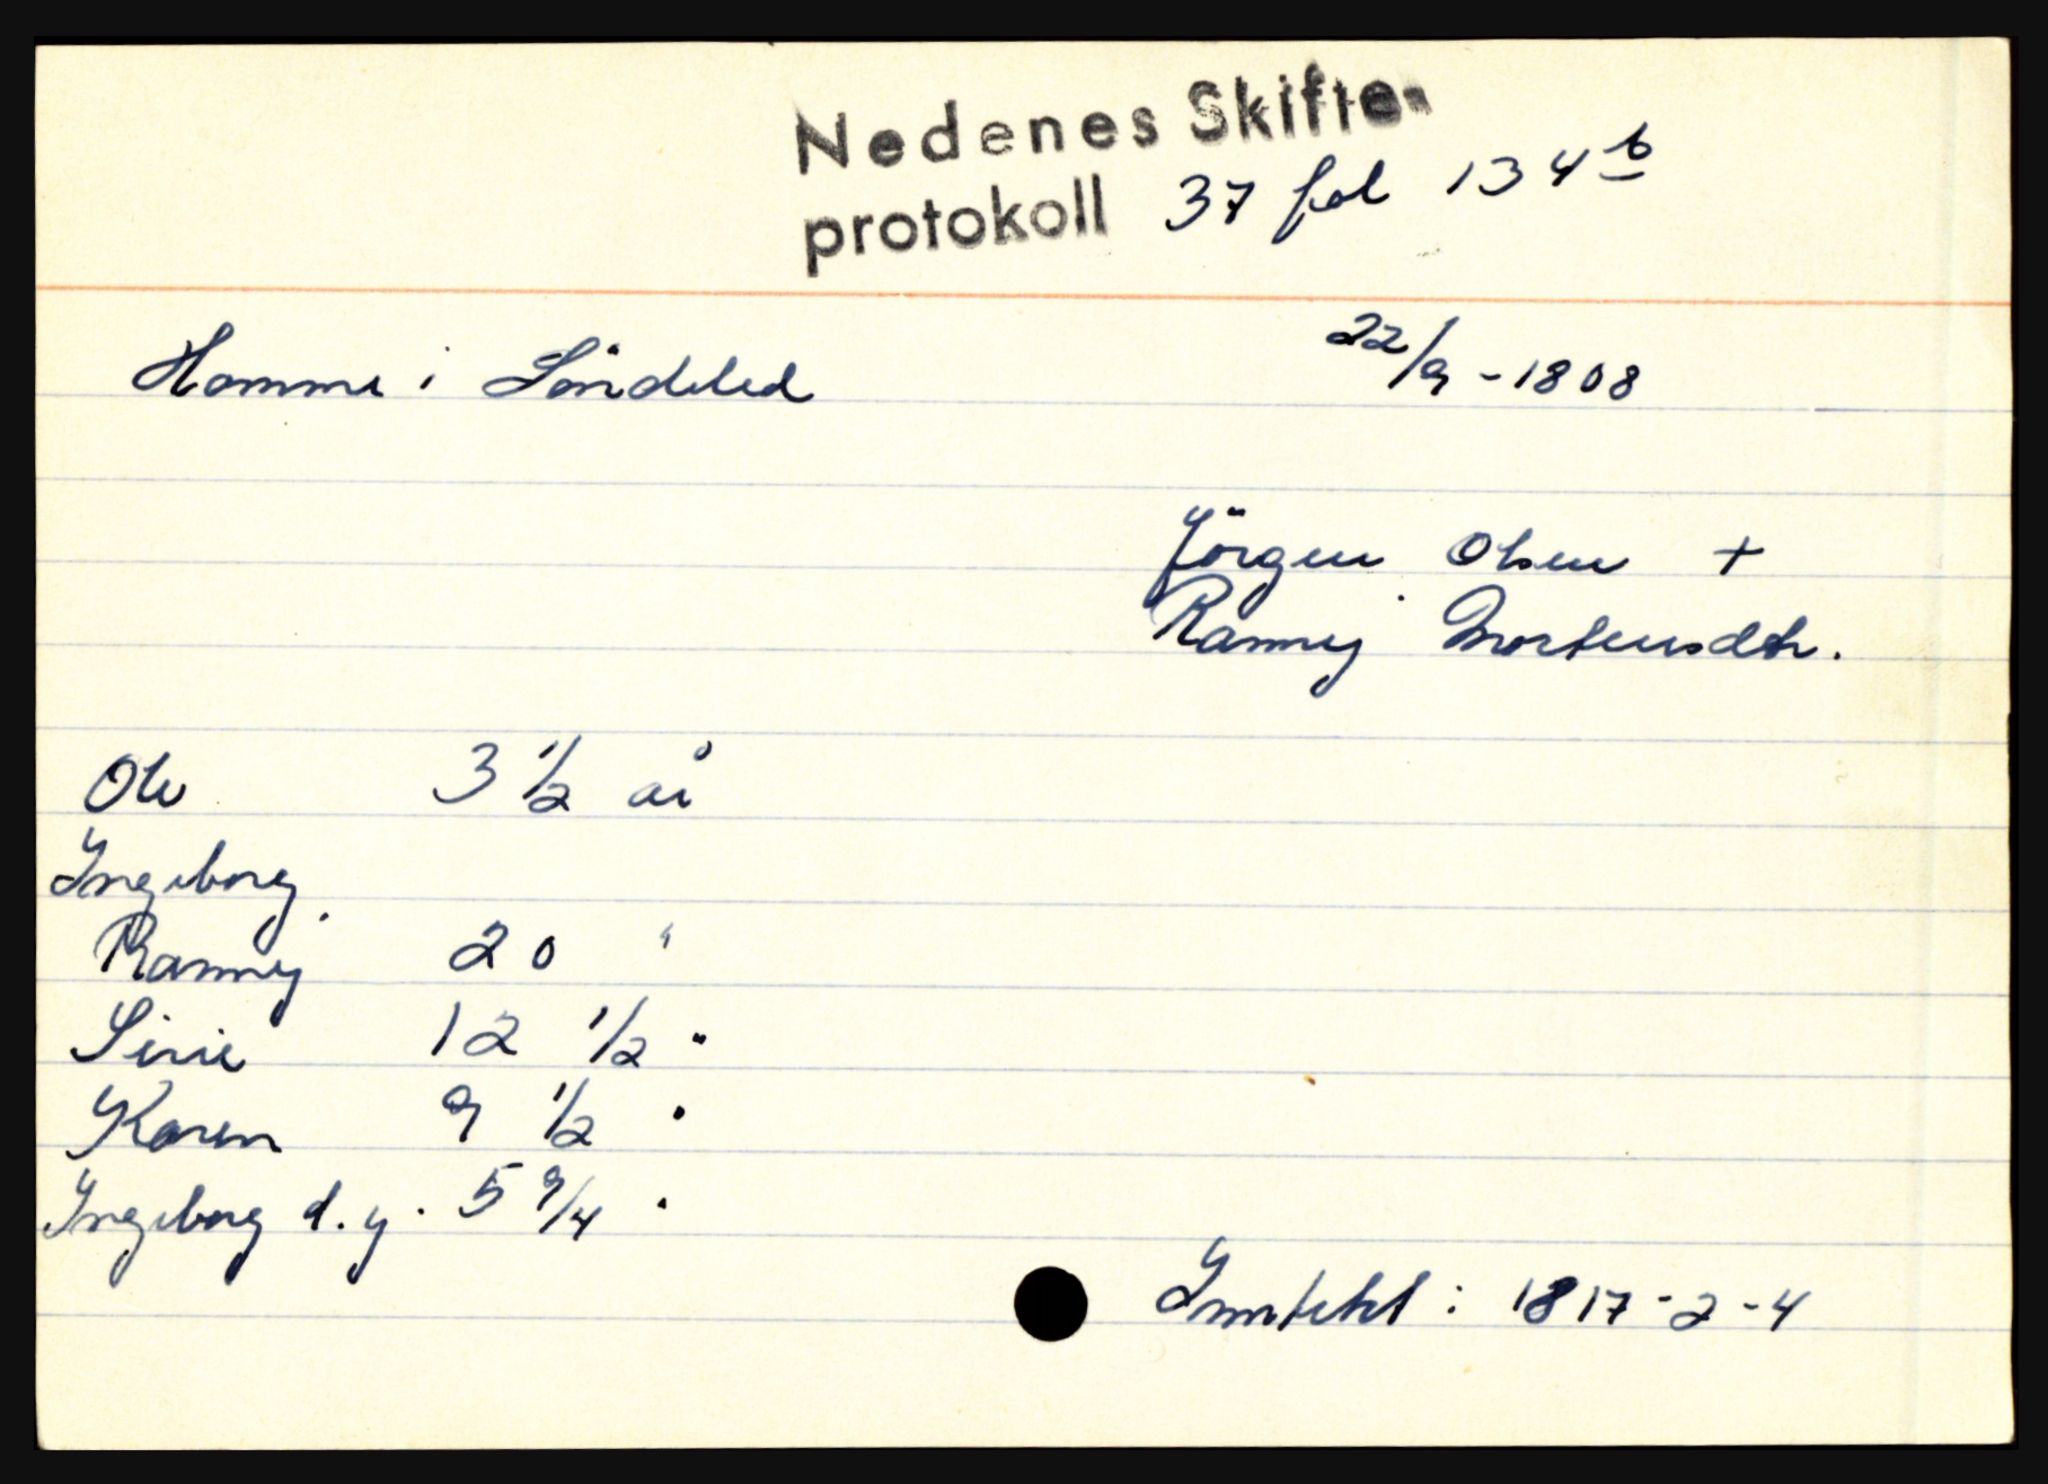 Nedenes Skifte-
protokoll 37 fol 134 b
Hamme i Söndeled 22/9 - 1808
Jörgen Olsen +
Ranney Mortensdtr.
Ole 3 1/2 år
Ingeborg
Ranney 20 "
Sirie 12 1/2 "
Karen 9 1/2 "
Ingeborg d.y. 5 9/4 "
Inntekt : 1817 - 2 - 4